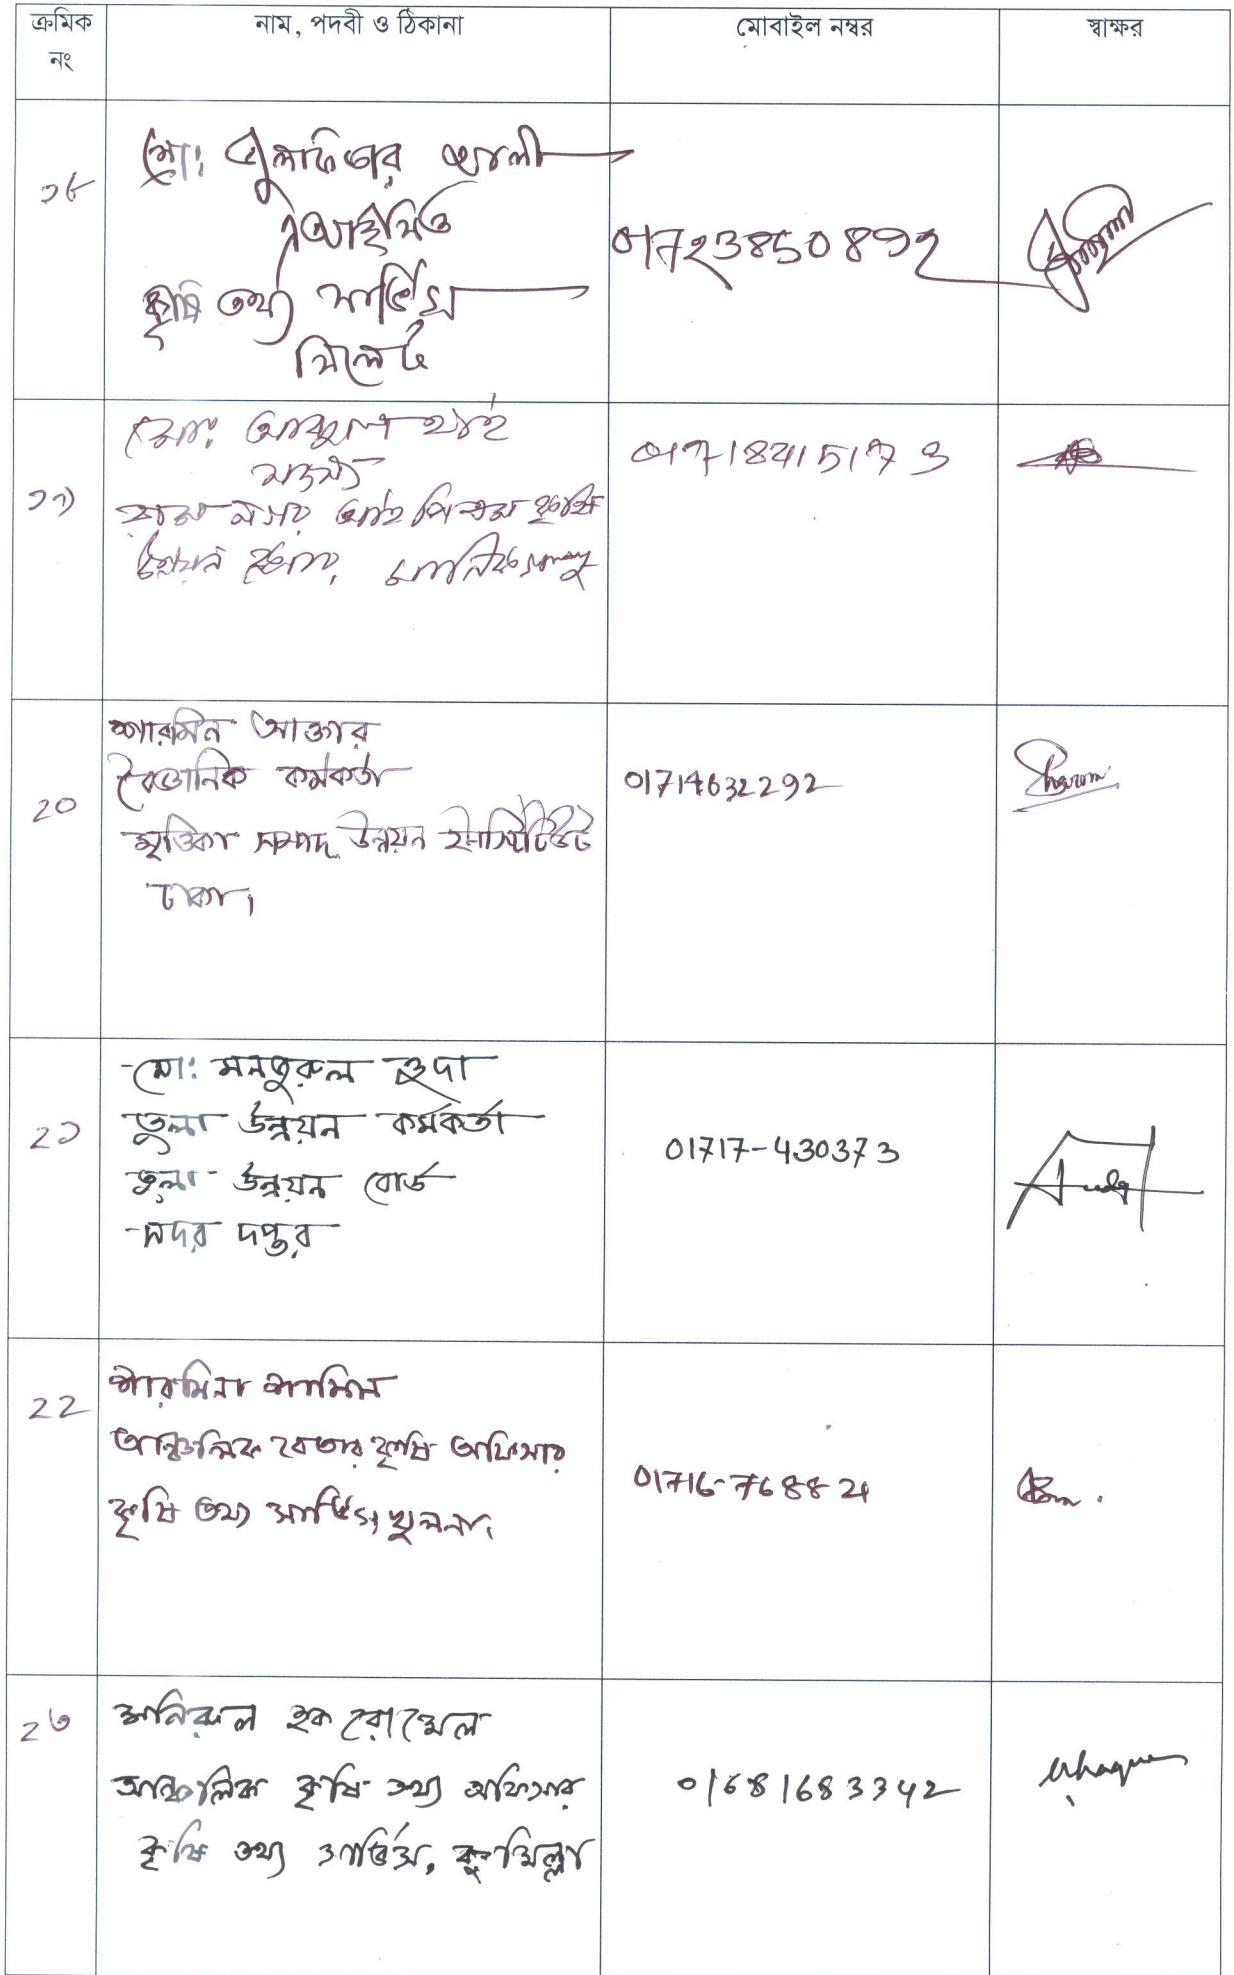 ক্রমিক নং	নাম, পদবী ও ঠিকানা	মোবাইল নম্বর	স্বাক্ষর
১৮
মো: জুলফিকার আলী
এআইসিও
কৃষি তথ্য সার্ভিস
সিলেট
01723850892
১৯
মো: আবদুল হাই
সদস্য
আই পি এম কৃষি
উন্নয়ন
0171841517
২০
শারমিন আক্তার
বৈজ্ঞানিক কর্মকর্তা
মৃত্তিকা সম্পদ উন্নয়ন ইনস্টিটিউট
ঢাকা।
01714632292
২১
মো: মনজুরুল হুদা
তুলা উন্নয়ন কর্মকর্তা
তুলা উন্নয়ন বোর্ড
সদর দপ্তর
01717-430373
২২
শারমিনা শামিন
আঞ্চলিক বেতার কৃষি অফিসার
কৃষি তথ্য সার্ভিস, খুলনা।
01716-768821
২৩
মনিরুল হক রোমেল
আঞ্চলিক কৃষি তথ্য অফিসার
কৃষি তথ্য সার্ভিস, কুমিল্লা
01681683342